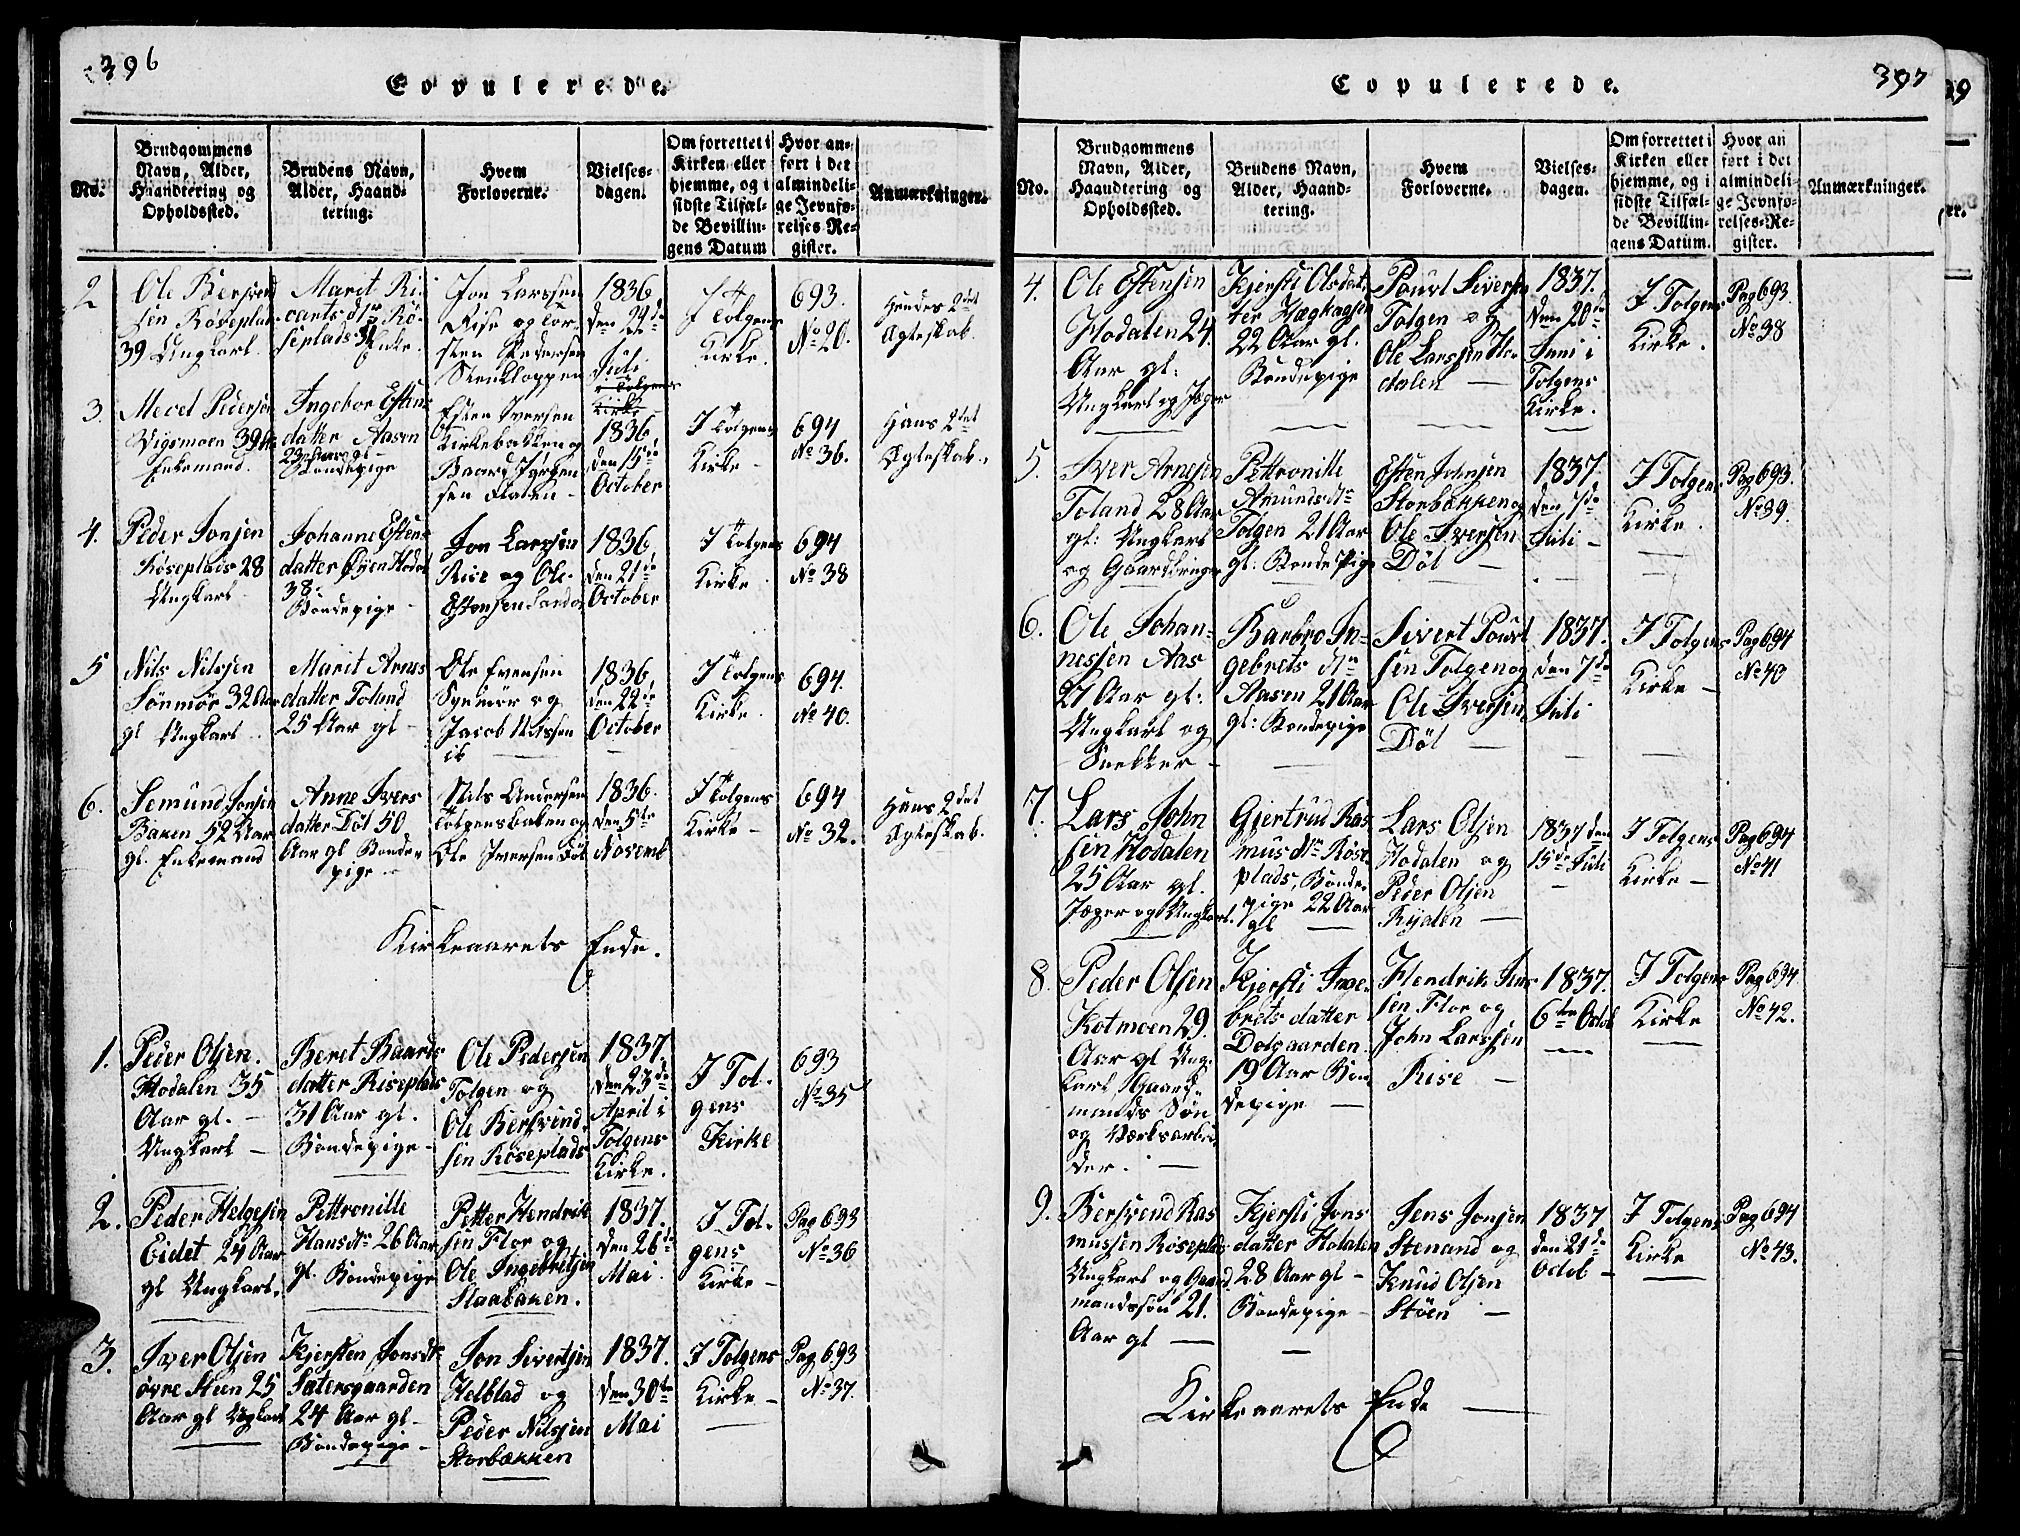 396
Copulerede.
No.
Brudgommens Navn, Alder, Haandtering og Opholdssted.
Brudens Navn, Alder, Haandtering.
Hvem Forloverne.
Vielsesdagen.
Om forrettet i Kirken eller hjemme, og i sidste Tilfælde Bevillingens Datum
Hvor anført i det almindelige Jevnførelses Register.
Anmærkninger.
2
Ole Bersvend
sen Røseplads
39 Ungkarl
Marit Ri
carts dtr Rø-
seplads
Enke.
Jon Larssen
Rise og Tor-
sten Pedersen
Stenkloppen
1836
den 22de
Juli
i Tolgens
Kirke
I Tolgens
Kirke.
693.
No 20.
Hendes 2det
Ægteskab
3.
Pedersen
Vigsmoen 39
Enkemand.
Ingebor Estens
datter Aasen
gl
Bondepige
Esten Iversen
Kirkebakken og
Baard
sen
1836
den 15de
October
I Tolgens
Kirke
694
No 36.
Hans 2det
Ægteskab.
4.
Peder Jonsen
Røseplads 28
Ungkarl
Johanne Estens
datter Øien Hodal
38.
Bondepige
Jon Larssen
Rise og Ole
Estensen
1836
den 21de
October
I Tolgens
Kirke
694
No 38
5
Nils Nilsen
Sønmør 32 Aar
gl Ungkarl
Marit Arnes
datter Toland
25 Aar gl
Ole Iversen
og
Jacob Nilssen
1836,
den 22de
October
I Tolgens
Kirke.
694.
No 40.
6.
Semund Jonsen
Baken 52 Aar
gl. Enkemand
Anne Ivers
datter Døl 50
Aar gl Bonde
pige
Nils Andersen
Tolgensbaken og
Ole Iversen Døl
1836.
den 5te
Novemb
I Tolgens
Kirke
694
No 32.
Hans 2det
Ægteskab.
Kirkeaarets Ende.
1.
Peder Olsen.
Hodalen 35
Aar gl.
Ungkarl
Beret Baards
datter Riseplads
31 Aar gl.
Bondepige
Ole Pedersen
Tolgen og
Ole Bersvend
sen Røseplads
1837.
den 23de
April i
Tolgens
Kirke.
I Tol-
gens
Kirke
693
No 35
2.
Peder Helgesen
Eidet 24 Aar
gl Ungkarl.
Pettronille
Hans dtr 26 Aar
gl. Bondepige
Petter Hendrik
sen Flor og
Ole Ingebretsen
Staabaken.
1837.
den 26de
Mai.
I Tol-
gens
Kirke
Pag 693
No 36
3.
Iver Olsen
øvre Steen 25
Aar gl Ungkarl
Kjersten Jonsdtr
Sætersgaarden
24 Aar gl.
Bondepige
Jon Sivertsen
Helblad og
Peder Nilsen
Storbækken
1837.
den 30te
Mai
I Tolgens
Kirke
Pag 693
No 37.
397
Copulerede.
No.
Brudgommens Navn, Alder, Haandtering og Opholdssted.
Brudens Navn, Alder, Haandtering.
Hvem Forloverne.
Vielsesdagen.
Om forrettet i Kirken eller hjemme, og i sidste Tilfælde Bevillingens Datum.
Hvor anført i det almindelige Jevnførelses-Register.
Anmærkninger.
4.
Ole Estensen
Hodalen 24.
Aar gl:
Ungkarl og Jæger
Kjersti Olsdat
ter
22 Aar gl.
Bondepige
Pouvl Siversen
Tolgen og
Ole Larssen Ho-
dalen
1837.
den 20de
Juni i
Tolgens
Kirke.
I Tolgens
Kirke.
Pag 693
No 38
5.
Iver Arnesen
Toland 28 Aar
gl: Ungkarl
og Gaardbruger
Pettronille
Amunds dtr
Tolgen 21 Aar
gl: Bondepige
Esten Johnsen
Storbækken og
Ole Iversen
Døl
1837.
den 7de
Juli
I Tolgens
Kirke.
Pag 693.
No 39.
6.
Ole Johan-
nessen Aas
27 Aar gl:
Ungkarl og
Snekker
Barbro In-
gebrets dtr
Aasen 21 Aar
gl: Bondepige
Sivert Pouvl
sen Tolgen og
Ole Iversen
Døl
1837.
den 7de
Juli
I Tolgens
Kirke
Pag 694
No 40
7.
Lars John
sen Hodalen
25 Aar gl.
Jæger og Ungkarl.
Gjertrud Ras
mus dtr Røse-
plads, Bonde-
pige 22 Aar
gl
Lars Olsen
Hodalen og
Peder Olsen
Ryalen
1837 den
15de Juli
I Tolgens
Kirke
Pag 694
No 41
8.
Peder Olsen
Kotmoen 29.
Aar gl Ung-
karl Gaard-
mands Søn
og Værksarbei
der.
Kjersti Inge-
brets datter
Dolgaarden.
19 Aar Bon
depige
Hendrik Jens
sen Flor og
John Larssen
Rise
1837.
6te Octob
I Tolgens
Kirke
Pag 694
No 42.
9.
Bersvend Ras
mussen Røseplads
Ungkarl og Gaard
mandssøn 21.
Aar gl
Kjersti Jons
datter Hodalen
28 Aar gl
Bondepige
Jens Jonsen
Stenand og
Knud Olsen
Støen
1837
den 21de
Octob
I Tolgens
Kirke
Pag 694
No 43.
Kirkeaarets Ende